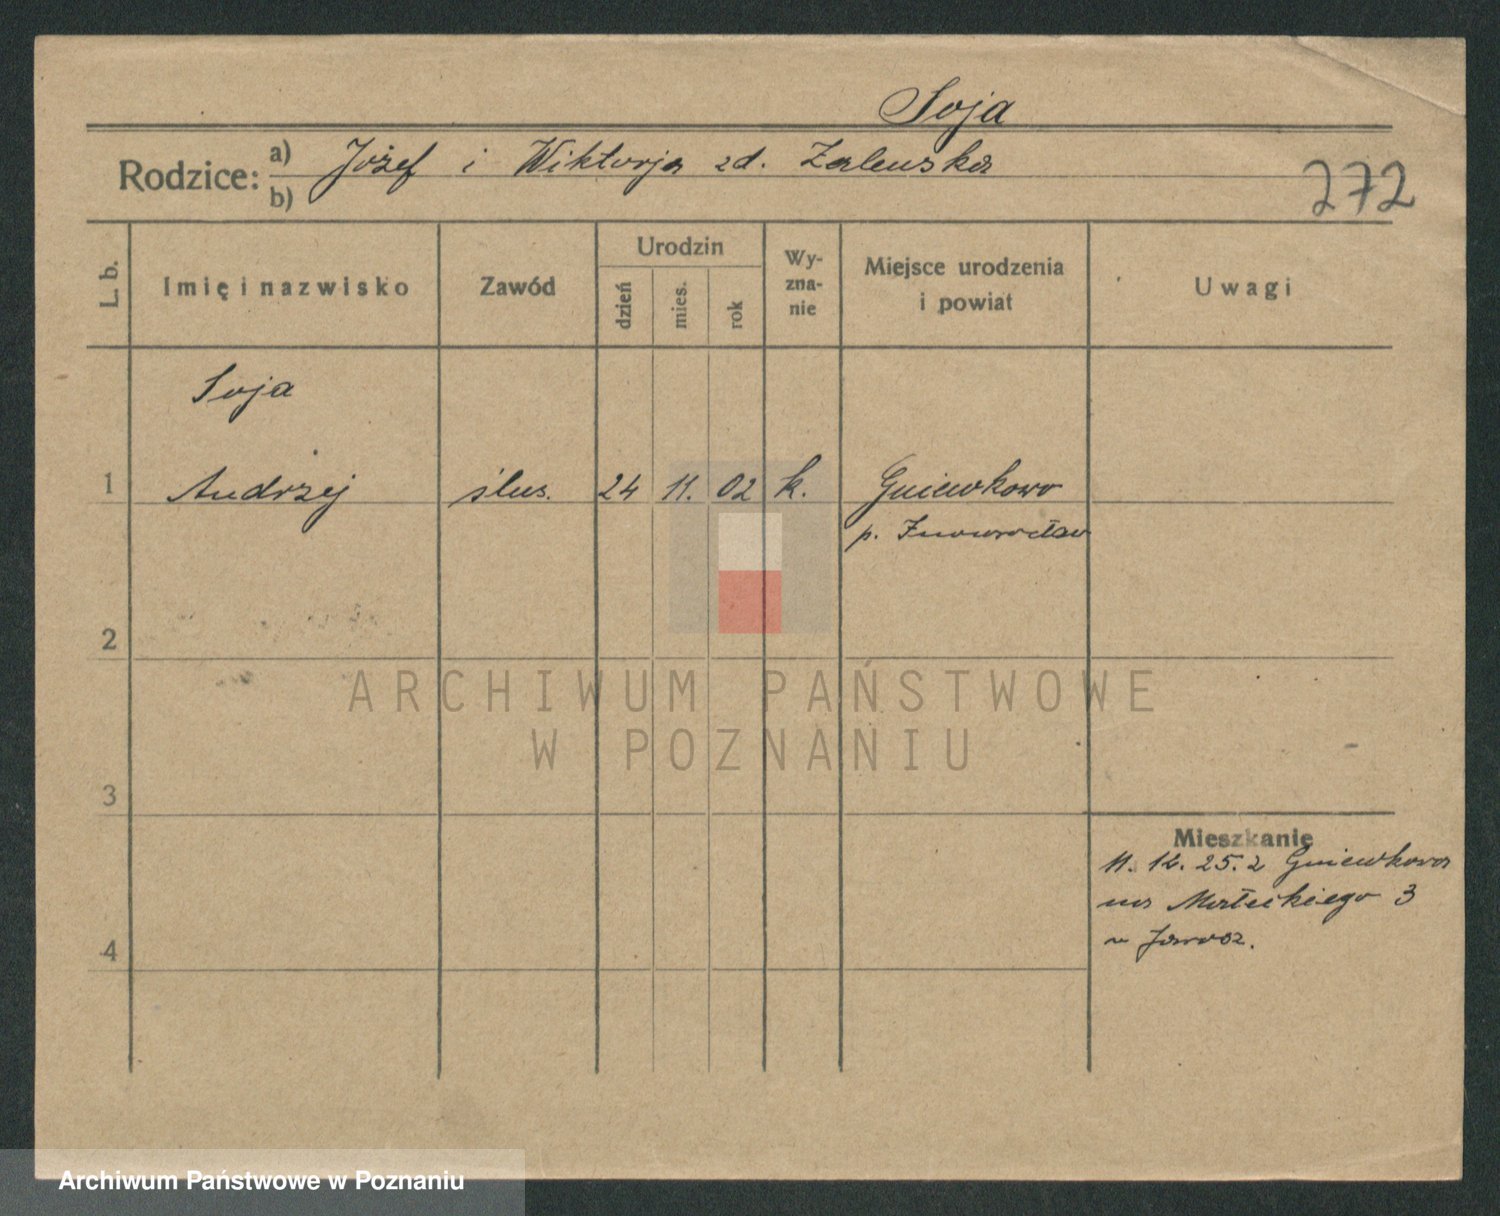 Soja
Rodzice: a) Józef i Wiktorja zd. Zalewska
b)
272
L. b.
Imię i nazwisko
Zawód
Urodzin
dzień
mies.
rok
Wy-
zna-
nie
Miejsce urodzenia
i powiat
Uwagi
Soja
1 Andrzej ślus. 24 11. 02 k. Gniewkowo
p. Inowrocław
2
3
4
Mieszkanie
11. 12. 25. z Gniewkowa
na Małeckiego 3
u Jarosz.
ARCHIWUM PAŃSTWOWE
W POZNANIU
Archiwum Państwowe w Poznaniu